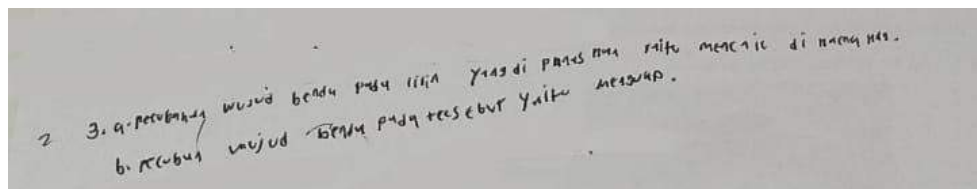 2 3. a. perubahan wujud benda pada lilin yang di panas nan yaitu mencair di namanas.
b. peruban wujud benda pada tersebut yaitu menguap.